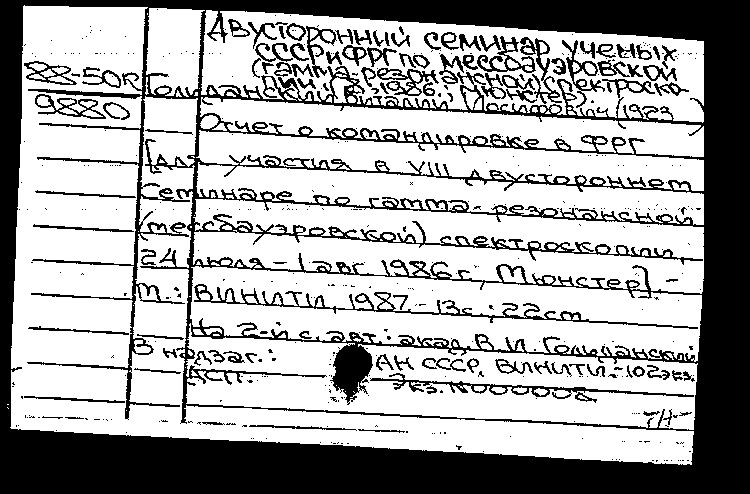 Двусторонний семинар ученых
СССР и ФРГ по мессбауэровской
(гамма-резонансной) спектроско-
пии (8, 1986, Мюнстер).
88-50R
Гольданский, Виталий Иосифович (1923 )
9880
Отчет о командировке в ФРГ
[для участия в VIII двустороннем
Семинаре по гамма-резонансной
(мессбауэровской) спектроскопии,
24 июля - 1 авг. 1986 г., Мюнстер]. -
М.: ВИНИТИ, 1987. - 13 с.; 22 см.
На 2-й с. авт.: акад. В.И. Гольданский
В надзаг.: АН СССР, ВИНИТИ. - 102 экз.
ДСП. Экз. N000008